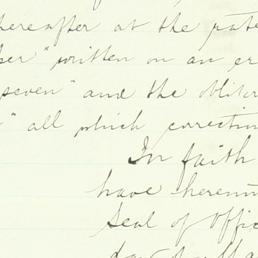 hereafter at the rate
ber" written on an er
seven" and the obliter
" all which correction
In faith
have hereun
Seal of Offic
day of Ma